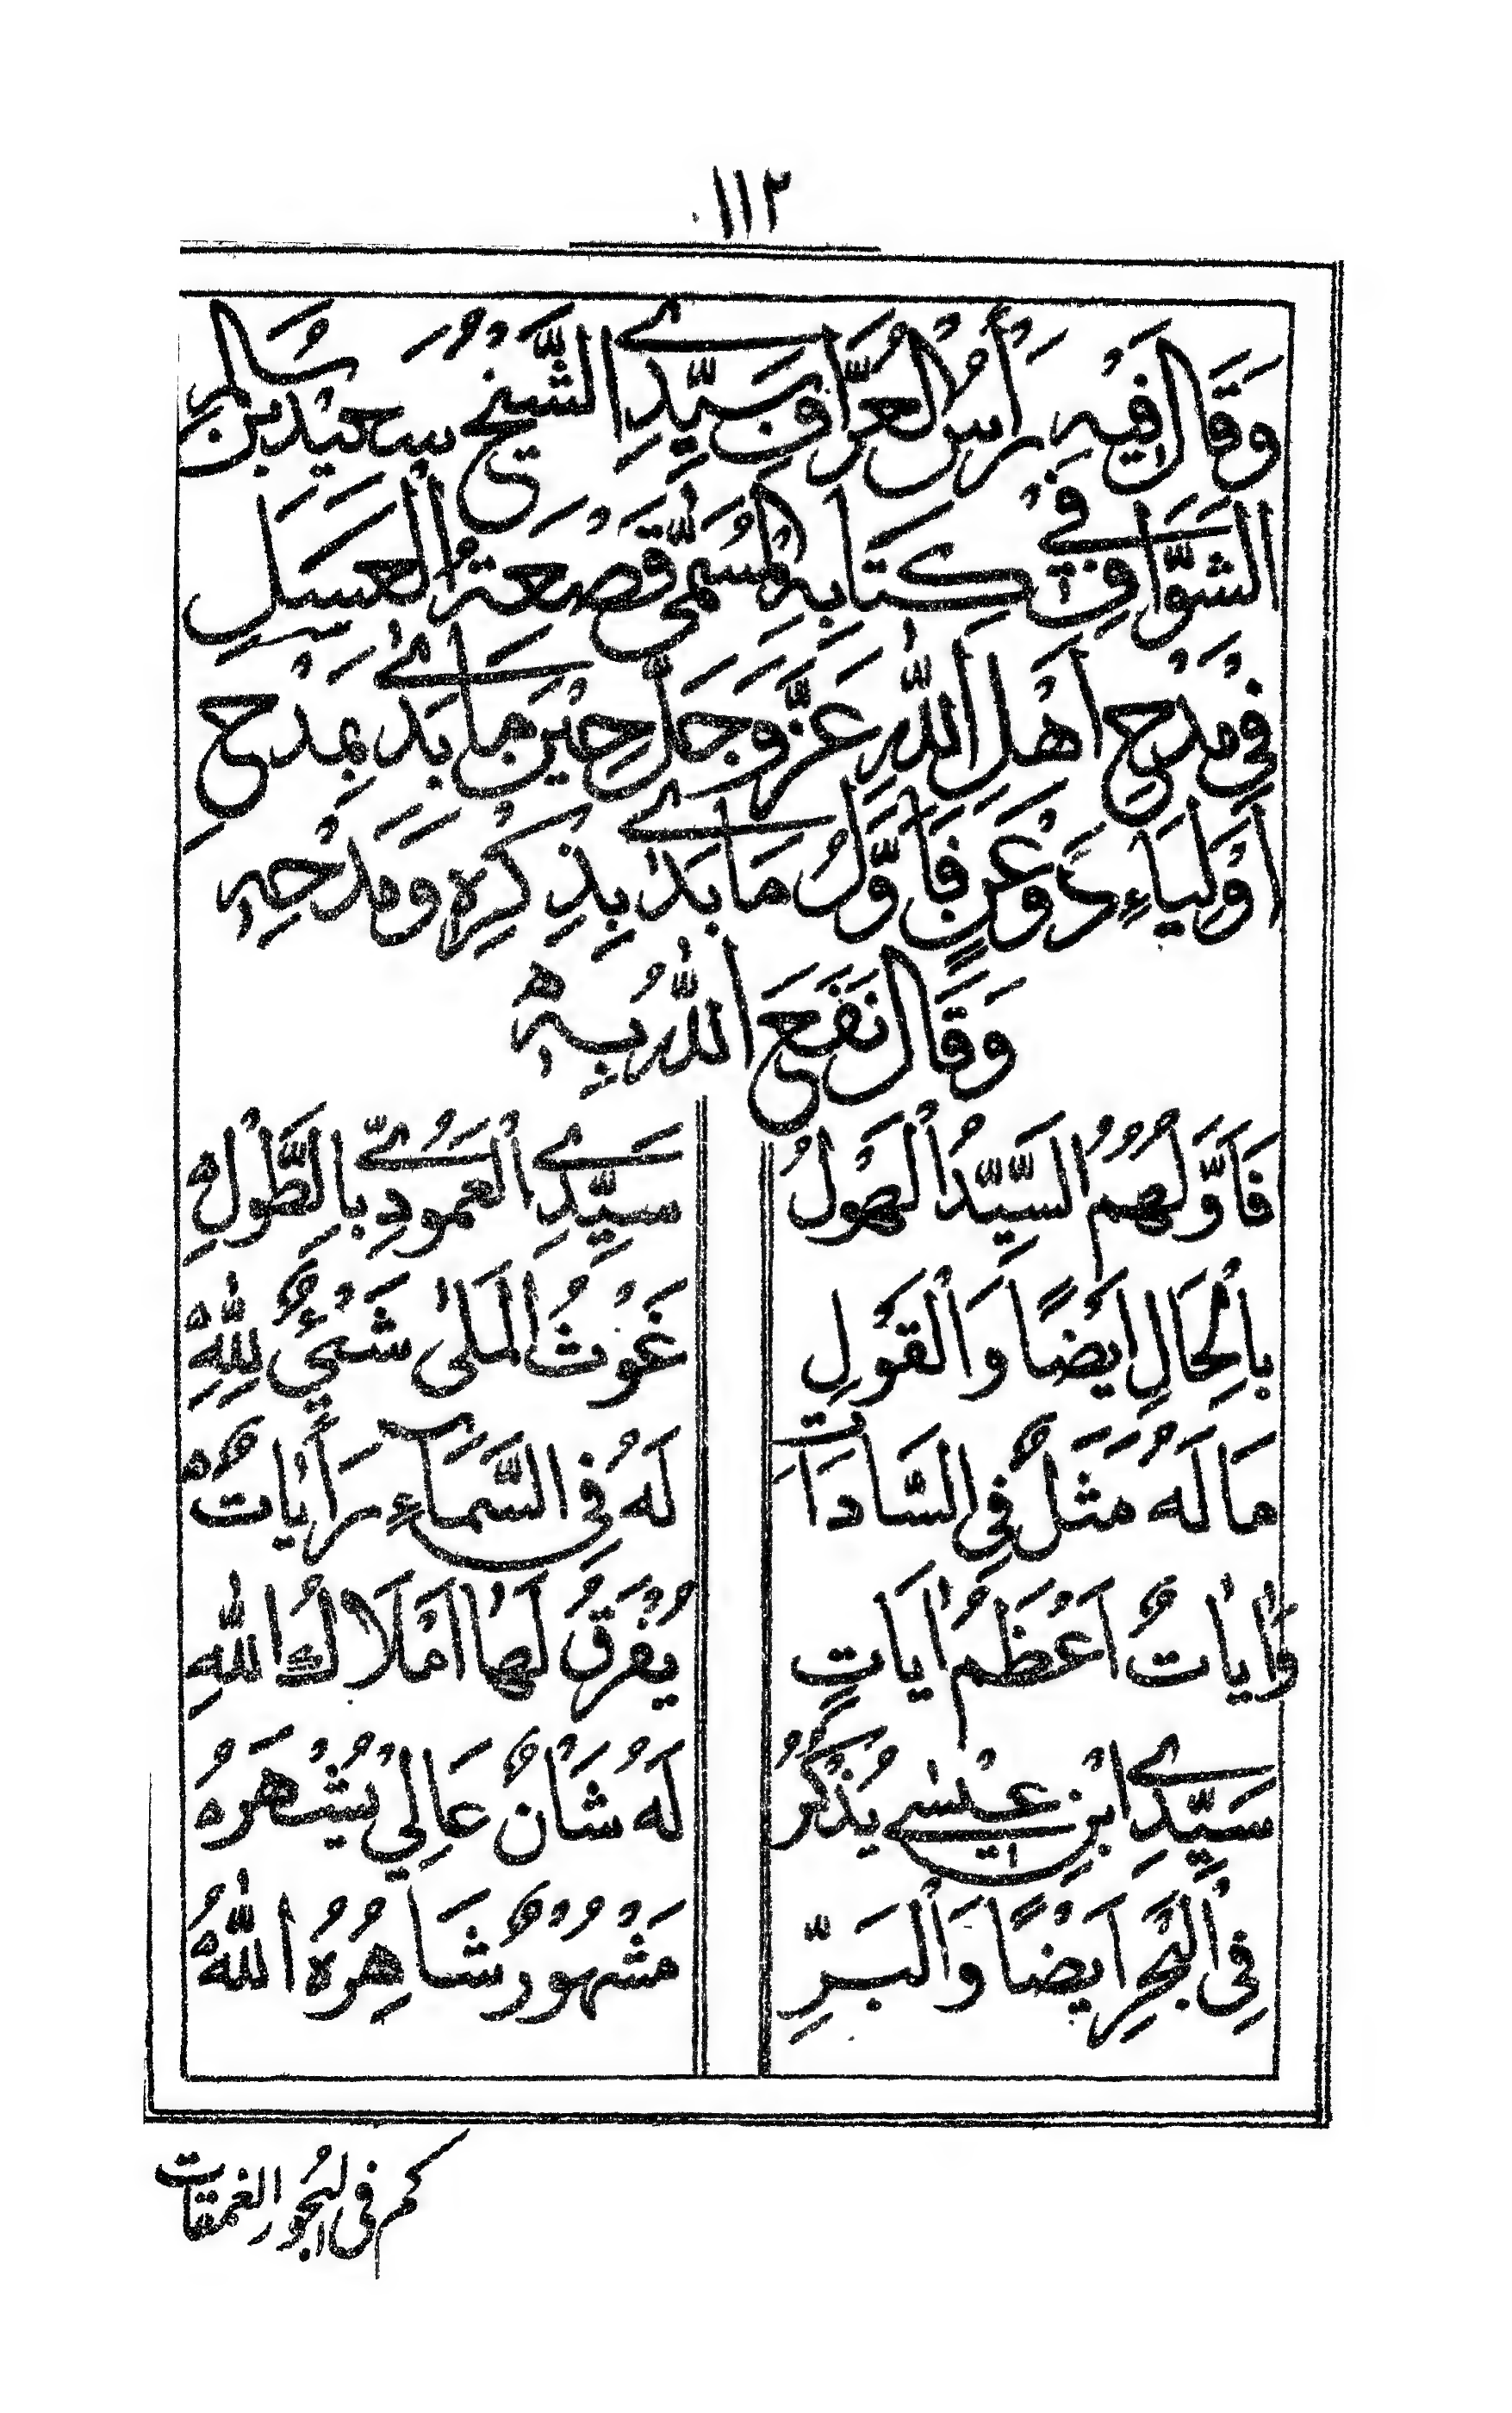 ١١٢
وَقَالَ فِيْهِ رَأْسُ الْعُرَّافِ سَيِّدِي الشَّيْخُ سَعِيْد بْن سَالِم
الشَّوَّافِ فِيْ كِتَابِهِ الْمُسَمّٰى قَصْعَةُ الْعَسَلِ
فِيْ مَدْحِ اَهْلِ اللّٰهِ عَزَّ وَجَلَّ حِيْنَ مَا بَدٰٓى بِمَدْحِ
اَوْلِيَاءِ دَوْعَنٍ فَاَوَّلُ مَا بَدٰى بِذِكْرِهِ وَمَدْحِهِ
وَقَالَ نَفَعَ اللّٰهُ بِهِ
فَاَوَّلُهُمُ السَّيِّدُ الْهَوْلُ
سَيِّدِيْ الْعَمُوْدِيُّ بِالطَّوْلِ
بِالْحَالِ اَيْضًا وَالْقَوْلِ
غَوْثُ الْمَلٰى شَيْئٌ لِلّٰهِ
مَا لَهُ مَثَلٌ فِي السَّادَاتِ
لَهُ فِي السَّمَاءِ رَايَاتٌ
وَاٰيَاتٌ اَعْظَمُ اٰيَاتٍ
يُفْرَقُ لَهَا اَمْلَاكُ اللّٰهِ
سَيِّدِيْ ابْنِ عِيْسٰى يُذْكَرُ
لَهُ شَانٌ عَالِيْ يُشْهَرُهُ
فِي الْبَحْرِ اَيْضًا وَالْبَرِّ
مَشْهُوْرٌ شَاهِرُهُ اللّٰهُ
كم في البحور الغمقات